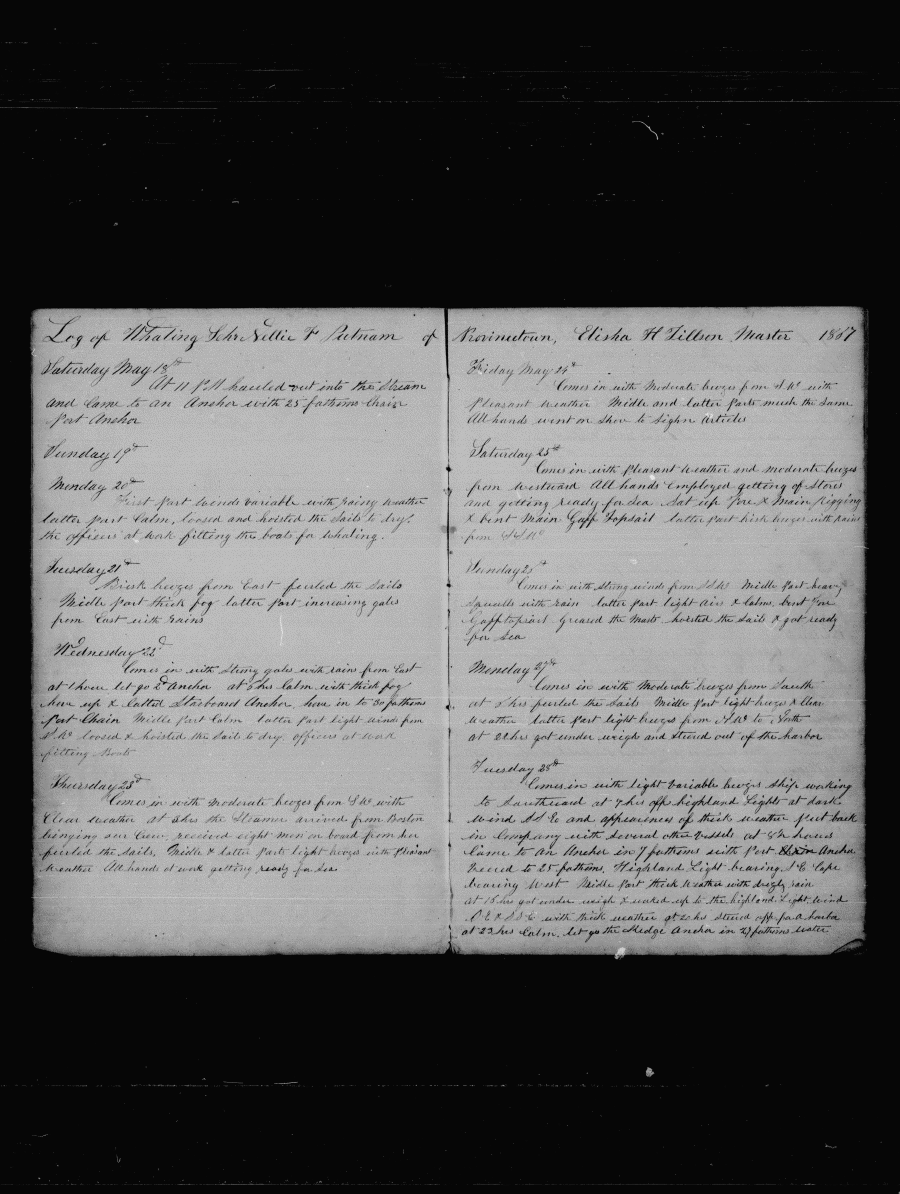 Log of Whaling Schr Nellie F Putnam of
Saturday May 18th
At 11 P.M hauled out into the Stream
and Came to an Anchor with 25 fathoms Chain
Port Anchor
Sunday 19th
Monday 20th
First part Winds variable with rainy weather
latter part Calm, loosed and hoisted the Sails to dry.
the officers at work fitting the boats for whaling.
Tuesday 21st
Brisk breezes from East furled the Sails
Midle part thick fog latter part increasing gales
from East with rains
Wednesday 22d
Comes in with Strong gales with rains from East
at 1 hour let go 2d Anchor at 5 hrs Calm with thick fog
hove up & Catted Starboard Anchor, hove in to 30 fathoms
Port Chain Midle part Calm latter part light wind from
S.W. loosed & hoisted the Sails to dry. officers at work
fitting Boats
Thursday 23d
Comes in with moderate breezes from S.W. with
Clear weather at 5 hrs the Steamer arrived from Boston
bringing our Crew, received eight men on board from her
furled the Sails. Midle & latter parts light breezes with pleasant
weather All hands at work getting ready for Sea
Provincetown, Elisha H Tillson Master 1867
Friday May 24th
Comes in with Moderate breezes from S.W. with
pleasant weather Midle and latter parts much the Same
All hands went on Shore to Sighn articles
Saturday 25th
Comes in with pleasant weather and moderate breezes
from westward All hands employed getting of Stores
and getting ready for Sea. Sat up Fore & Main Rigging
& bent Main Gaff Topsail latter part brisk breezes with rains
from S.S.W.
Sunday
Comes in with strong winds from S.S.W. Midle part heavy
Squalls with rain latter part light airs & Calms, bent Fore
Gafftopsail Greased the Masts hoisted the Sails & got ready
for Sea
Monday 27th
Comes in with Moderate breezes from South
at 5 hrs furled the Sails Midle part light breezes & Clear
weather latter part light breezes from N.W. to North
at 22 hrs got under weigh and Steered out of the harbor
Tuesday 28th
Comes in with light variable breezes Ship working
to Southward at 7 hrs off highland Lights at dark
wind S.S.E and appearances of thick weather put back
in Company with several other vessels at 8½ hours
Came to an Anchor in 7 fathoms with Port Anchor
Veered to 25 fathoms. Highland Light bearing S.E. Cape
bearing West Midle part thick weather with drizly rain
at 15 hrs got under weigh & worked up to the highland Light, wind
S.E & S.S.E with thick weather at 20 hrs Steered off for a harbor
at 22 hrs Calm. let go the Kedge Anchor in 27 fathoms water